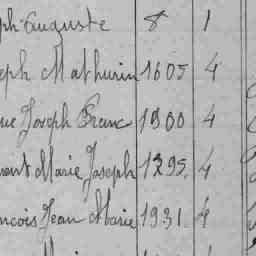 ph Auguste 8 1
eph Mathurin 1605 4
ue Joseph Franc 1900 4
ment Marie Joseph 1395. 4
ncois Jean Marie 1931. 4